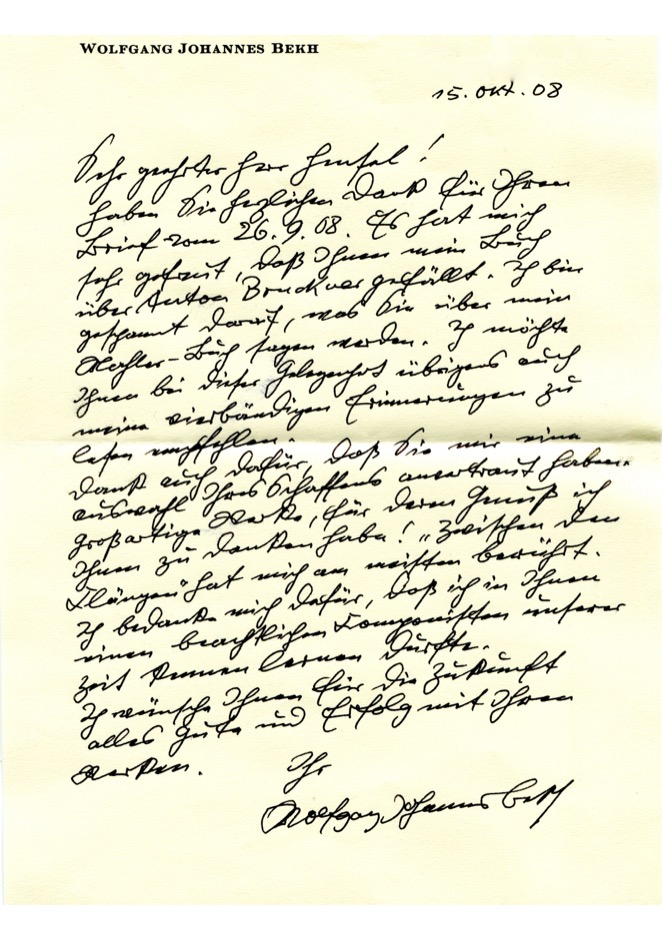 WOLFGANG JOHANNES BEKH
15. Okt. 08
Sehr geehrter Herr Hensel!
haben Sie herzlichen Dank für Ihren
Brief vom 26.9.08. Es hat mich
sehr gefreut, daß Ihnen mein Buch
über Anton Bruckner gefällt. Ich bin
gespannt darauf, was Sie über mein
Mahler-Buch sagen werden. Ich möchte
Ihnen bei dieser Gelegenheit übrigens auch
meine vierbändigen Erinnerungen zu
lesen empfehlen.
Dank auch dafür, daß Sie mir eine
Auswahl Ihres Schaffens anvertraut haben.
Großartige Werke, für deren Genuß ich
Ihnen zu danken habe! „Zwischen den
Klängen" hat mich am meisten berührt.
Ich bedanke mich dafür, daß ich in Ihnen
einen beachtlichen Componisten unserer
Zeit kennen lernen durfte.
Ich wünsche Ihnen für die Zukunft
alles Gute und Erfolg mit Ihren
Werken.
Ihr
Wolfgang Johannes Bekh